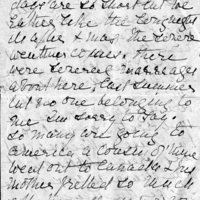 days are so short but we
rather like the long nights
us alone & may the severe
weather comes. There
were several marriages
about here, last Summer
but no one belonging to
me I'm sorry to say.
So many are going to
america a cousin of mine
went out to Canada & his
mother fretted so much